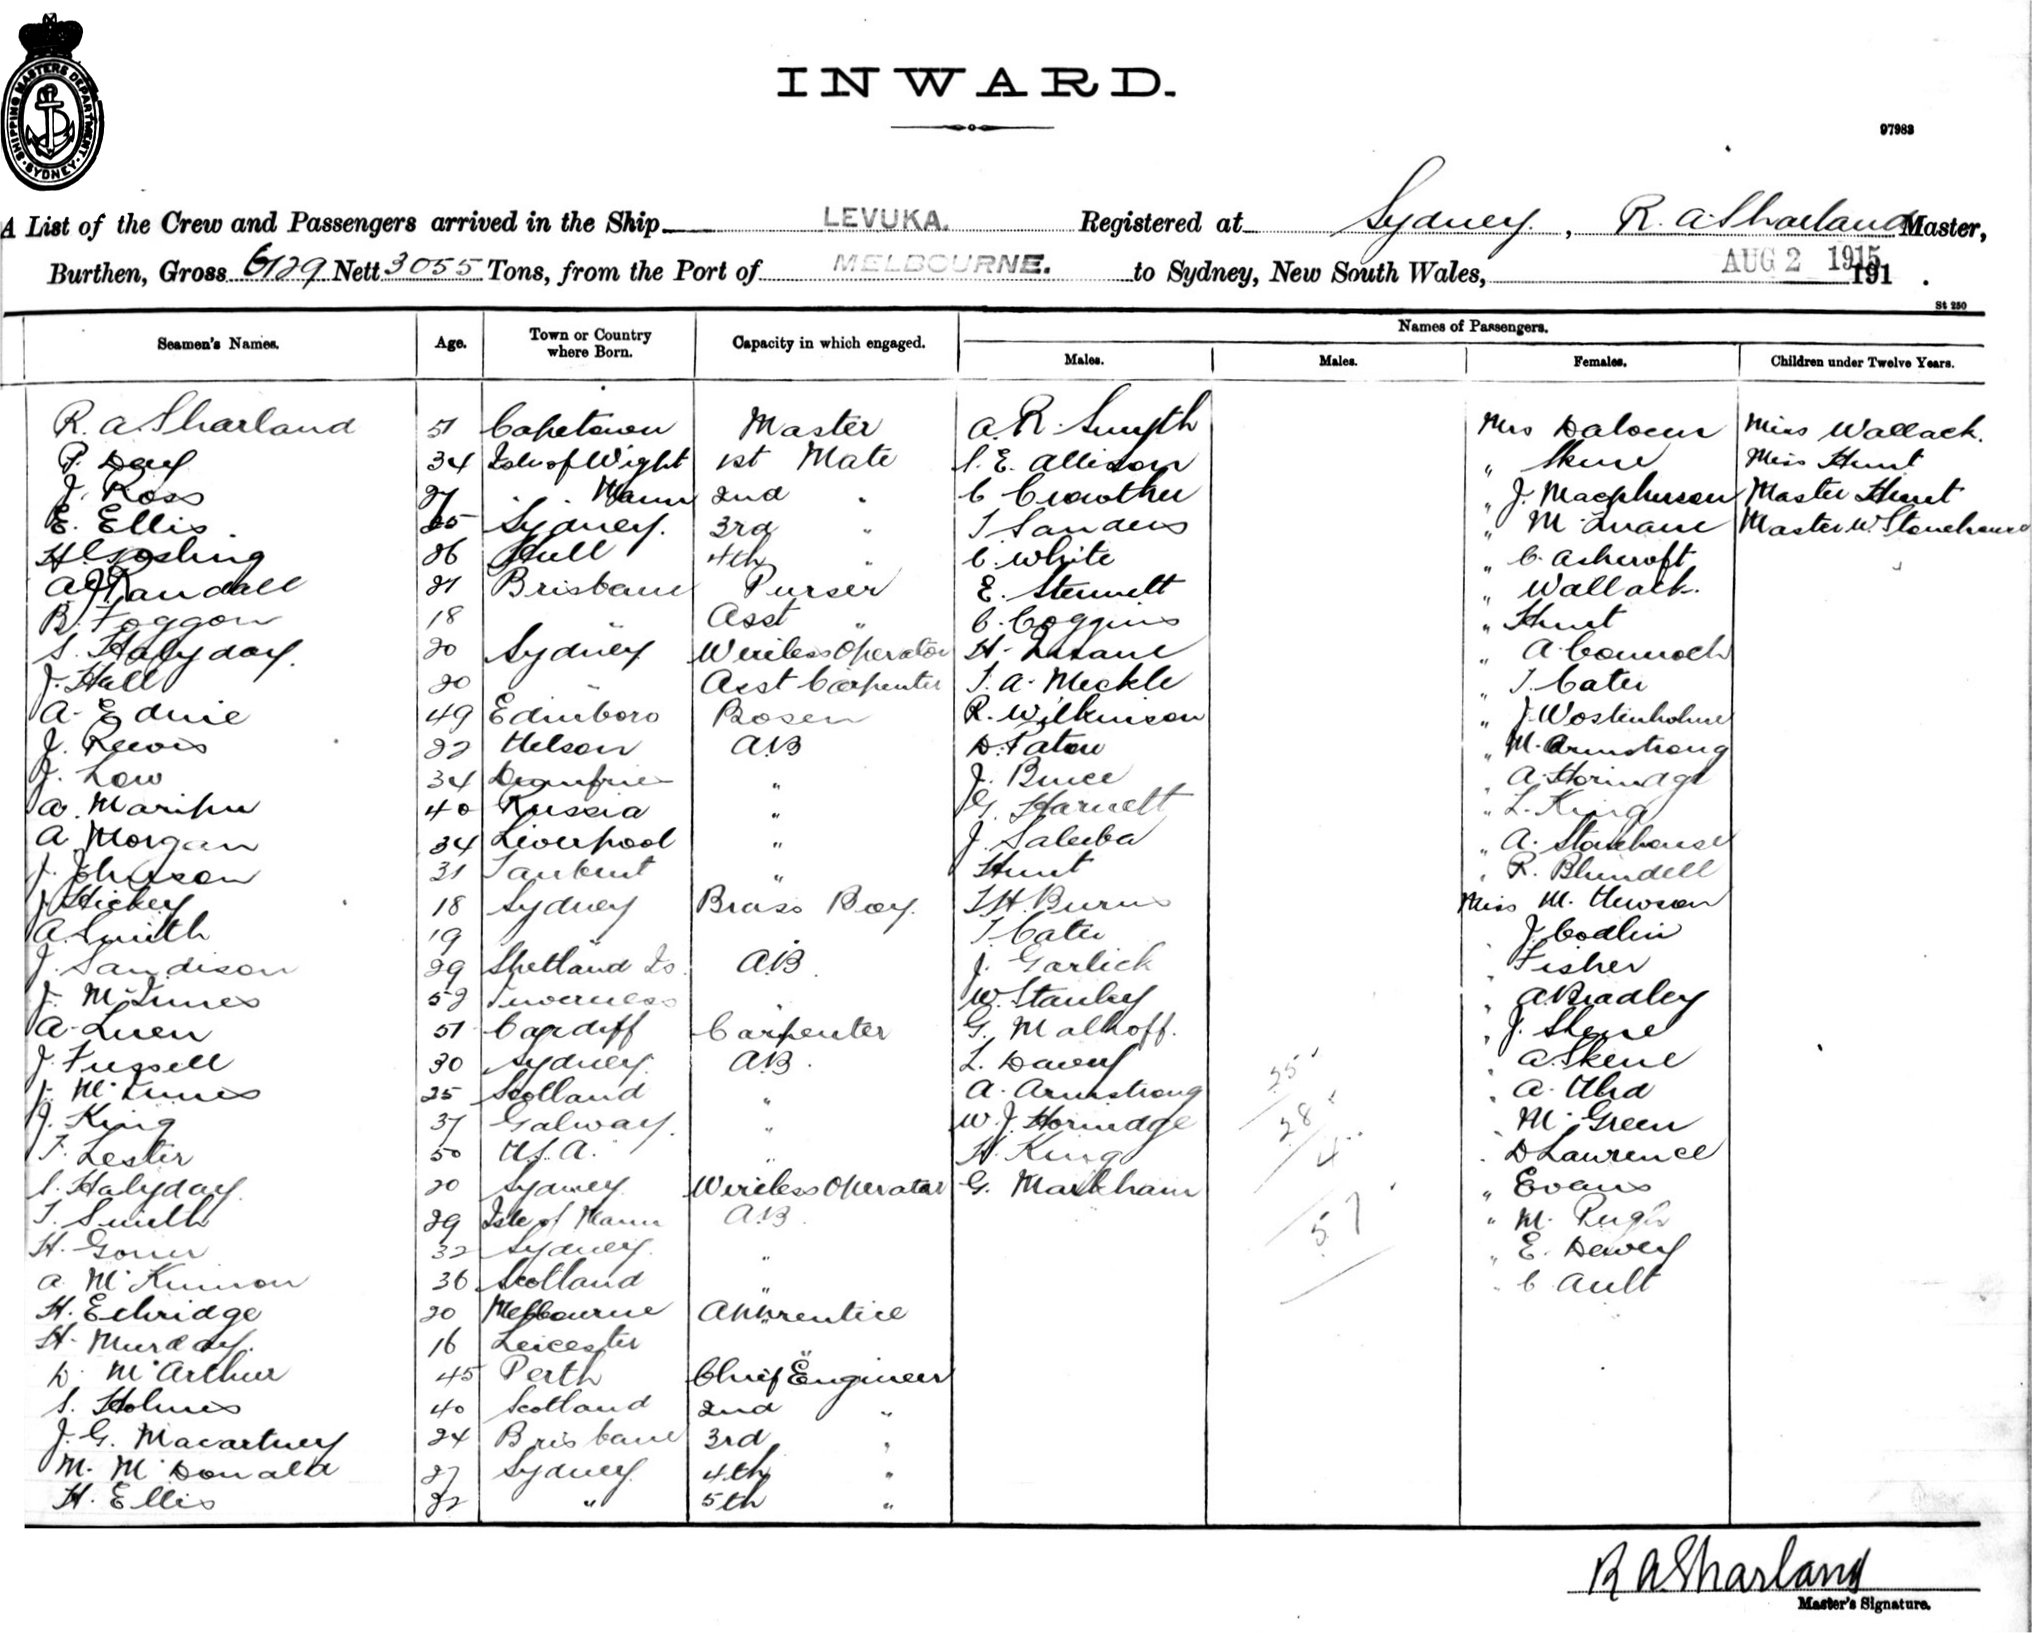 SHIPPING MASTERS DEPARTMENT · SYDNEY
INWARD.
97983
A List of the Crew and Passengers arrived in the Ship LEVUKA. Registered at Sydney, R. A. Sharland Master,
Burthen, Gross 6129 Nett 3055 Tons, from the Port of MELBOURNE. to Sydney, New South Wales, AUG 2 1915 191 .
St 250
Seamen's Names. Age. Town or Country where Born. Capacity in which engaged. Names of Passengers.
Males. Males. Females. Children under Twelve Years.
R. A. Sharland 51 Capetown Master A. R. Smyth Mrs Miss Wallack.
P. Day 34 Isle of Wight 1st Mate S. E. Allison " Skene Miss Hunt
J. Ross 27 " " Mann 2nd " C Crowther " J. Macpherson Master Hunt
E. Ellis 25 Sydney. 3rd " T Sanders " M Master W. Stonehouse
H. Gosling 26 Hull 4th " C. White " C. Ashcroft
A. J. Randall 21 Brisbane Purser E. Stennett " Wallack.
B. Foggon 18 " Asst " C. Coggins " Hunt
S. Halyday. 20 Sydney Wireless Operator H. " A.
J. Hall 20 " Asst Carpenter T. A. Meckle " T. Cater
A. Ednie 49 Edinboro Bosen R. Wilkinson " J. Wostenholme
J. 22 Nelson AB D. Paton " M. Armstrong
J. Low 34 Dumfries " J. Bruce " A. Horridge
A. 40 Russia " G. Harnett " L. King
A. Morgan 34 Liverpool " J. Saleeba " A. Stonehouse
J. Johnson 31 " Hunt " R. Blundell
J. Hickey 18 Sydney Brass Boy. T H Burns Miss M. Hewson
A. Smith 19 " " T Cater " J. Codlin
J. Sandison 29 Shetland Is. A.B. J. Garlick " Fisher
J. McInnes 52 Inverness " W. Stanley " A Bradley
A. Luen 51 Cardiff Carpenter G. Malhoff. " J. Skene
J. Fussell 30 Sydney. AB. L. Davey 25 " A Skene
J. McInnes 25 Scotland " A. Armstrong " A.
J. King 37 Galway. " W. J. Horridge 28 " M. Green
F. Lester 50 U.S.A. " H. King 4 " D Lawrence
S. Halyday. 20 Sydney Wireless Operator G. Markham " Evans
T. Smith 29 Isle of Mann A.B 57 " M. Pugh
H. 32 Sydney. " " E. Dewey
A. McKinnon 36 Scotland " " C Ault
H. Ethridge 20 Melbourne Apprentice
H. Murday. 16 Leicester "
D. McArthur 45 Perth Chief Engineer
S. Holmes 40 Scotland 2nd "
J. G. Macartney 24 Brisbane 3rd "
M. McDonald 27 Sydney. 4th "
H. Ellis 22 " 5th "
R A Sharland
Master's Signature.